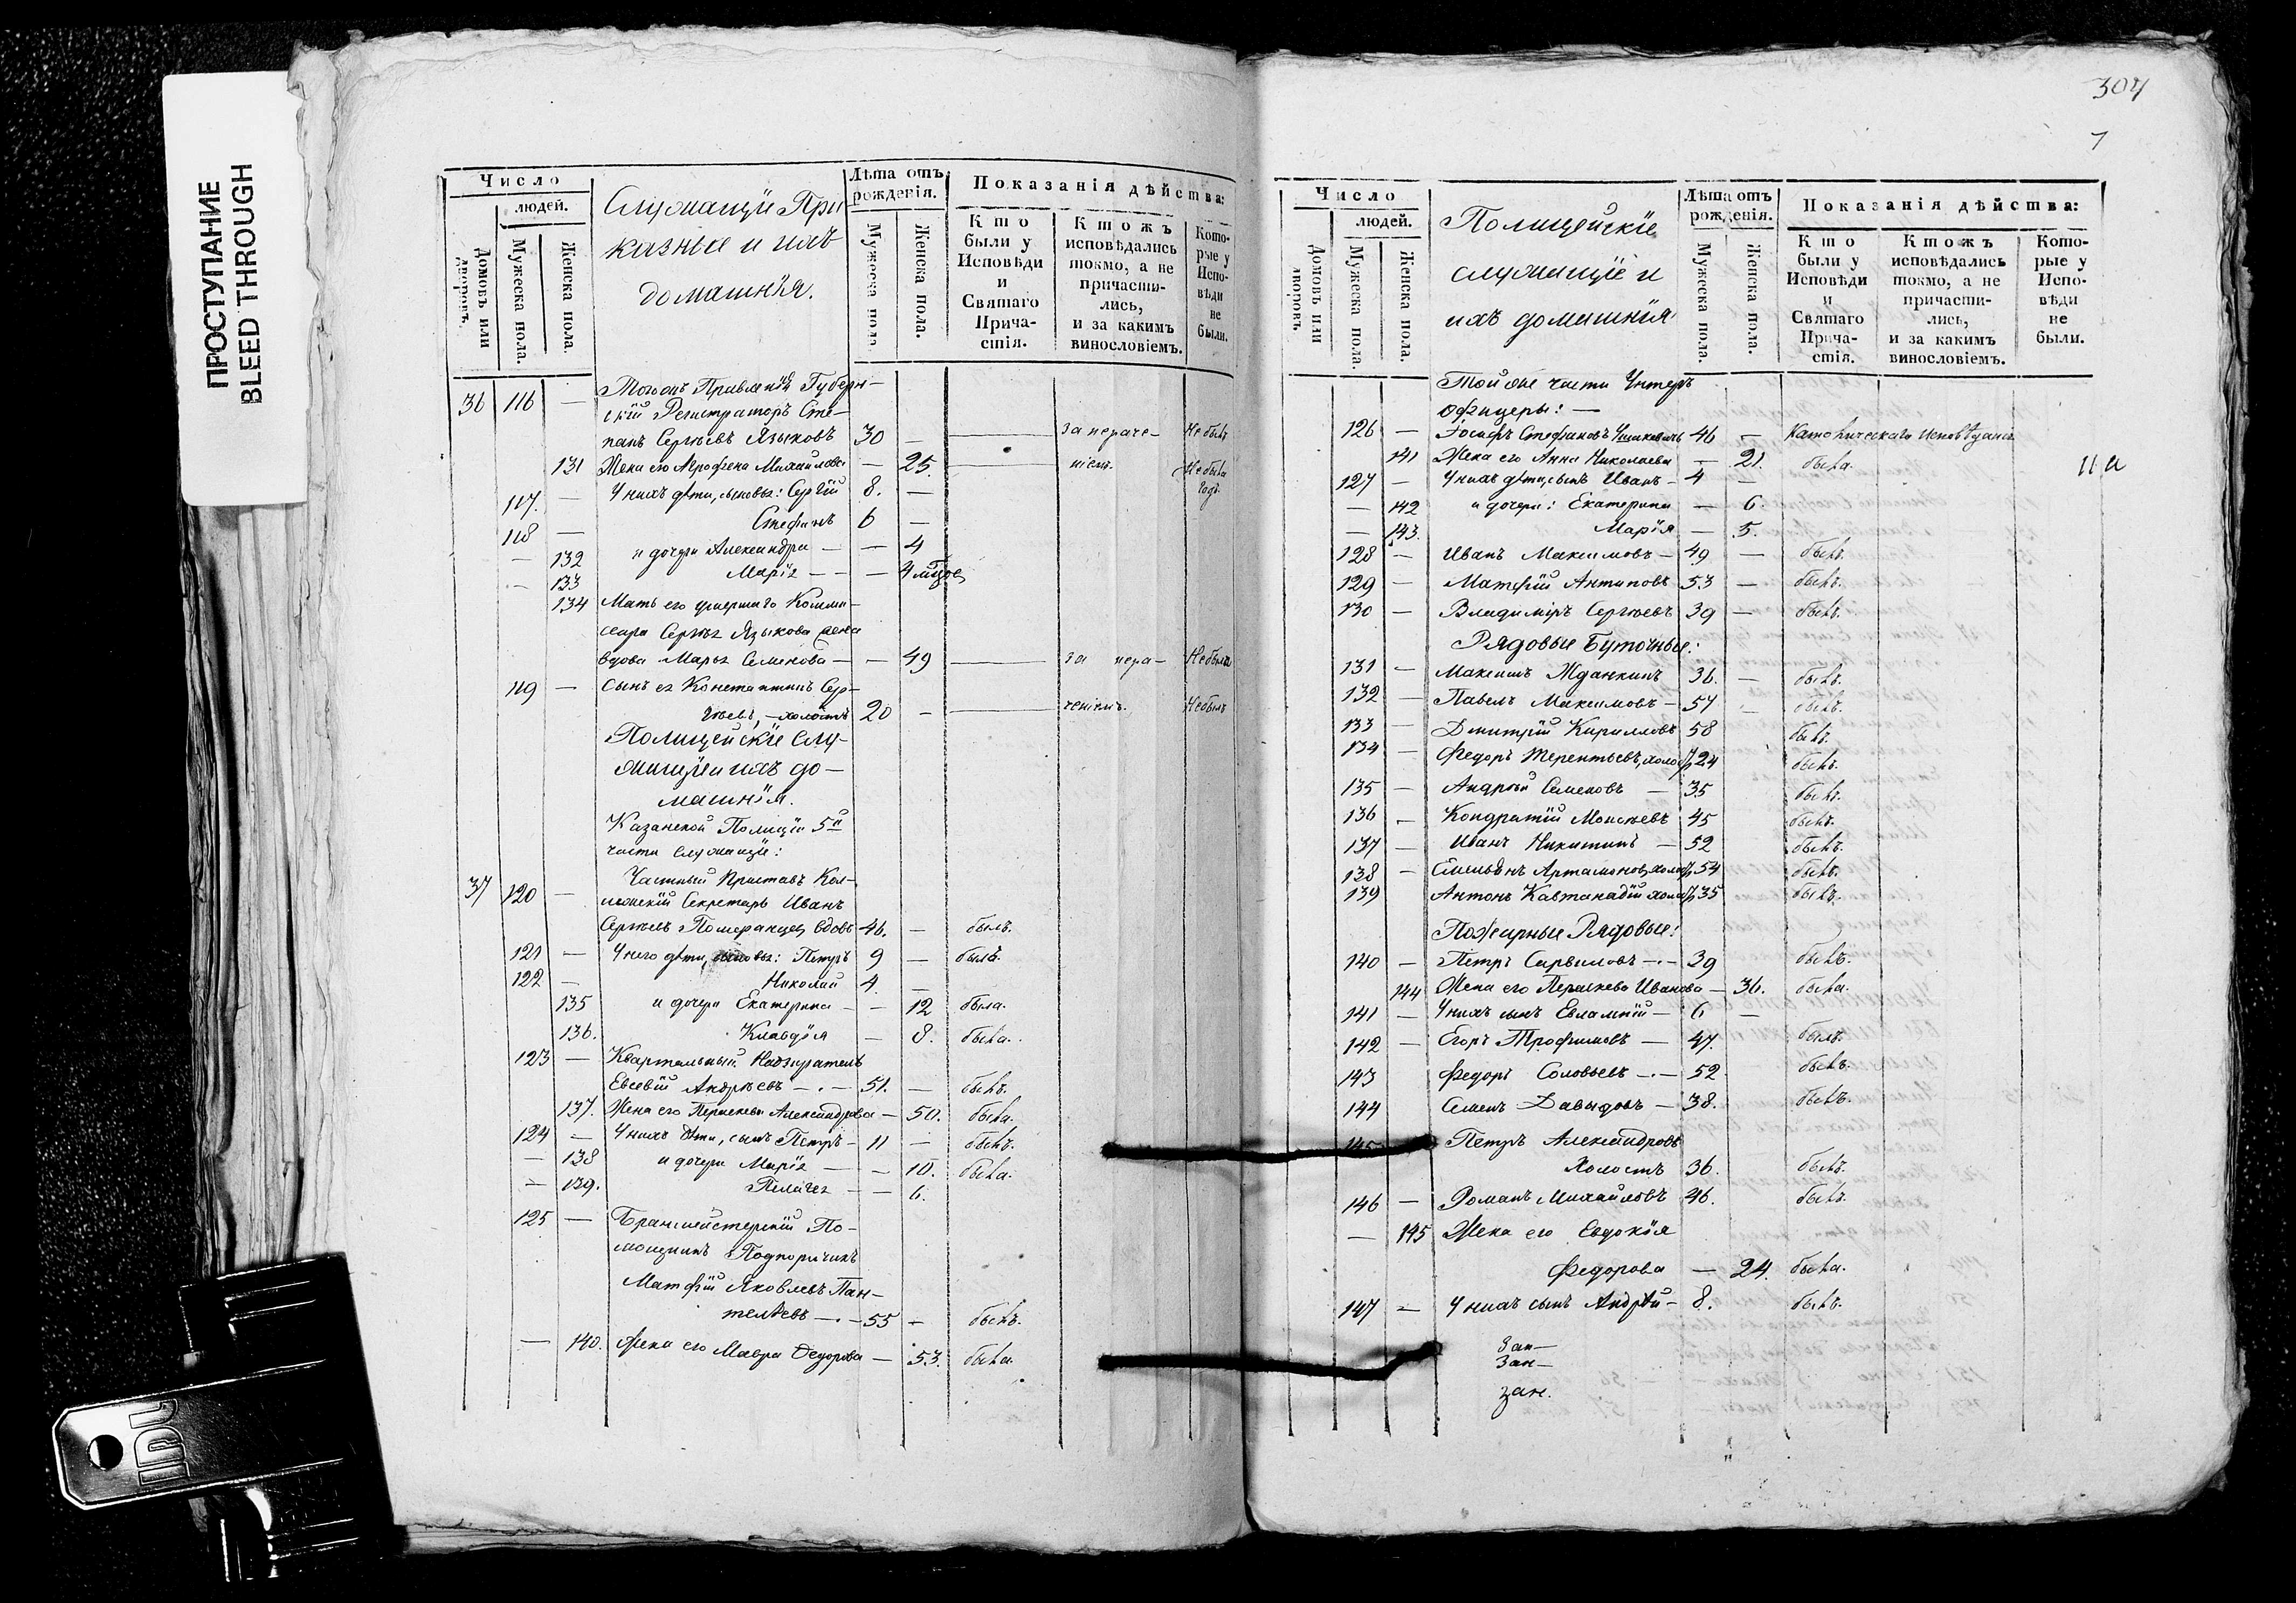 ПРОСТУПАНИЕ
BLEED THROUGH
Число
людей.
Домовъ или дворовъ.
Мужеска пола.
Женска пола.
Служащіи При-
казные и ихъ
домашнія.
Лѣта отъ рожденія.
Мужеска пола.
Женска пола.
Показанія дѣйства:
Кто были у Исповѣди и Святаго Прича-стія.
Ктожъ исповѣдались токмо, а не причасти-лись, и за какимъ винословіемъ.
Кото-рые у Испо-вѣди не были.
Тогожъ Правленія Губерн-
36 116 — скій Регистраторъ Сте-
панъ Сергѣевъ Языковъ 30 — за нераче- Не былъ
131 Жена его Михайлова — 25. ніемъ. Не была
117. — У нихъ дѣти, сыновья: Сергій 8. —
118 — Стефанъ 6 —
— 132 и дочери Александра — — 4
— 133 Марія — — 4 мѣсяц.
134 Мать его умершаго Комми-
сара Сергѣя Языкова жена
вдова Марья Семенова — — 49 за нера- Не была
119 — Сынъ ея Константинъ Сер-
гѣевъ, — холостъ 20 — ченіемъ. Не былъ
Полицейскіе слу-
жащіи и ихъ до-
машнія.
Казанской Полиціи 5й
части служащіе:
Частный Приставъ Кол-
37 120 — лежскій Секретарь Иванъ
Сергѣевъ Померанцев вдовъ 46. — былъ.
121 — У него дѣти, сыновья: Петръ 9 — былъ.
122 — Николай 4. —
135 и дочери Екатерина — — 12 была.
136. Клавдія — 8. была.
123 — Квартальный Надзиратель
Евсевій Андреевъ — . — 51. — былъ.
137. Жена его Параскева Александрова — 50. была.
124 — У нихъ дѣти, сынъ Петръ — 11 — былъ.
— 138 и дочери Марія — — 10. была.
— 139. Пелагея — — 6.
125 — Брантмейстерскій По-
мощникъ Подпоручикъ
Матфій Яковлевъ Пан-
телѣевъ — . — 55 — былъ.
— 140. Жена его Мавра Федорова — 53. была.
304
7
Число
людей.
Домовъ или дворовъ.
Мужеска пола.
Женска пола.
Полицейскіе
служащіе и
ихъ домашнія
Лѣта отъ рожденія.
Мужеска пола.
Женска пола.
Показанія дѣйства:
Кто были у Исповѣди и Святаго Прича-стія.
Ктожъ исповѣдались токмо, а не причасти-лись, и за какимъ винословіемъ.
Кото-рые у Испо-вѣди не были.
Той же части Унтеръ
офицеры: —
126 — Іосифъ Стефановъ 46 — Католическаго исповѣданія.
141 Жена его Анна Николаева — 21. была.
127 — У нихъ дѣти, сынъ Иванъ — 4 —
— 142 и дочери: Екатерина — 6.
— 143. Марія — 5.
128 — Иванъ Максимовъ — 49 — былъ.
129 — Матфій Антиповъ 53 — былъ.
130 — Владиміръ Сергѣевъ 39 — былъ.
Рядовые Буточные:
131 — Максимъ Жданкинъ 36. — былъ.
132 — Павелъ Максимовъ — 57 — былъ.
133 — Дмитрій Кирилловъ 58 былъ.
134 — Федоръ Терентьевъ, холос. 24 былъ.
135 — Андрей Семеновъ — 35 былъ.
136 — Кондратій Моисѣевъ 45 былъ.
137 — Иванъ Никитинъ — 52 былъ.
138 — Емельянъ Артамоновъ, холос. 54 былъ.
139 Антонъ холос. 35 былъ.
Пожарные Рядовые:
140 — Петръ — . — 39 былъ.
144 Жена его Параскева Иванова — 36. была.
141 — У нихъ сынъ Евлампій — 6 —
142 — Егоръ Трофимовъ — 47. былъ.
143 Федоръ Соловьевъ — . — 52 былъ.
144 Семенъ Давыдовъ — 38. былъ.
145 Петръ Александровъ
холостъ 36. былъ.
146 — Романъ Михайловъ 46. былъ.
— 145 Жена его Евдокія
Федорова — 24. была.
147 — У нихъ сынъ Андрей — 8. былъ.